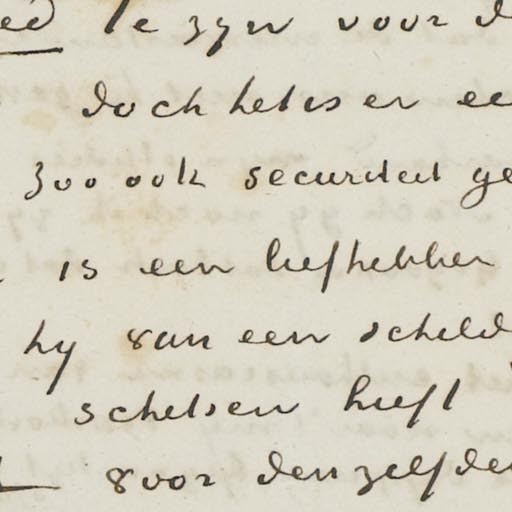 te zyn voor d
doch het is er ee
zoo ook securiteit ge
is een liefhebber
hy van een schild
schetsen heeft
voor denzelfde